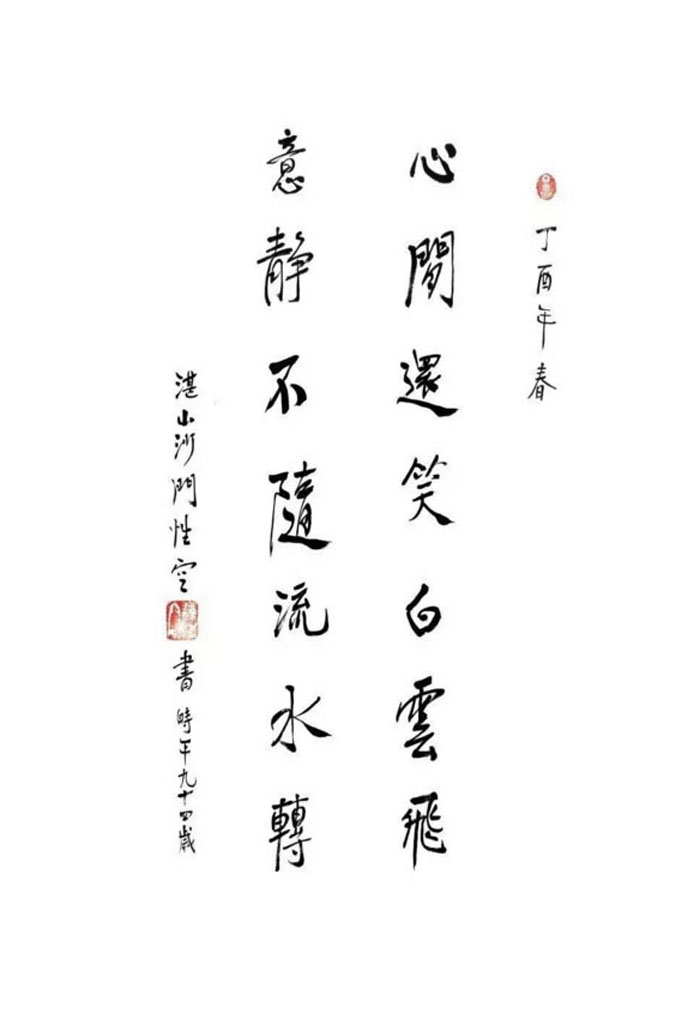 丁酉年春
心閒還笑白雲飛
意静不隨流水轉
湛山沙門性空
書時年九十四歲